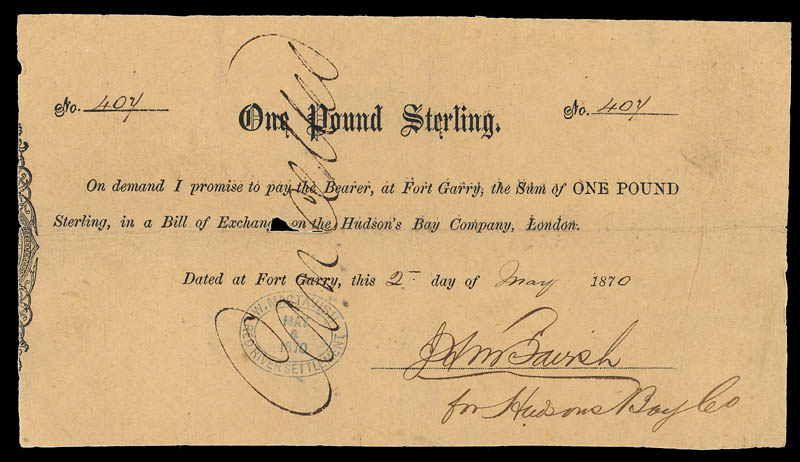 No. 407 No. 407
One Pound Sterling.
On demand I promise to pay the Bearer, at Fort Garry, the Sum of ONE POUND
Sterling, in a Bill of Exchange on the Hudson's Bay Company, London.
Dated at Fort Garry, this 2 day of May 1870
W. MACTAVISH
MAY
4
1870
RED RIVER SETTLEMENT
for Hudsons Bay Co
Cancelled